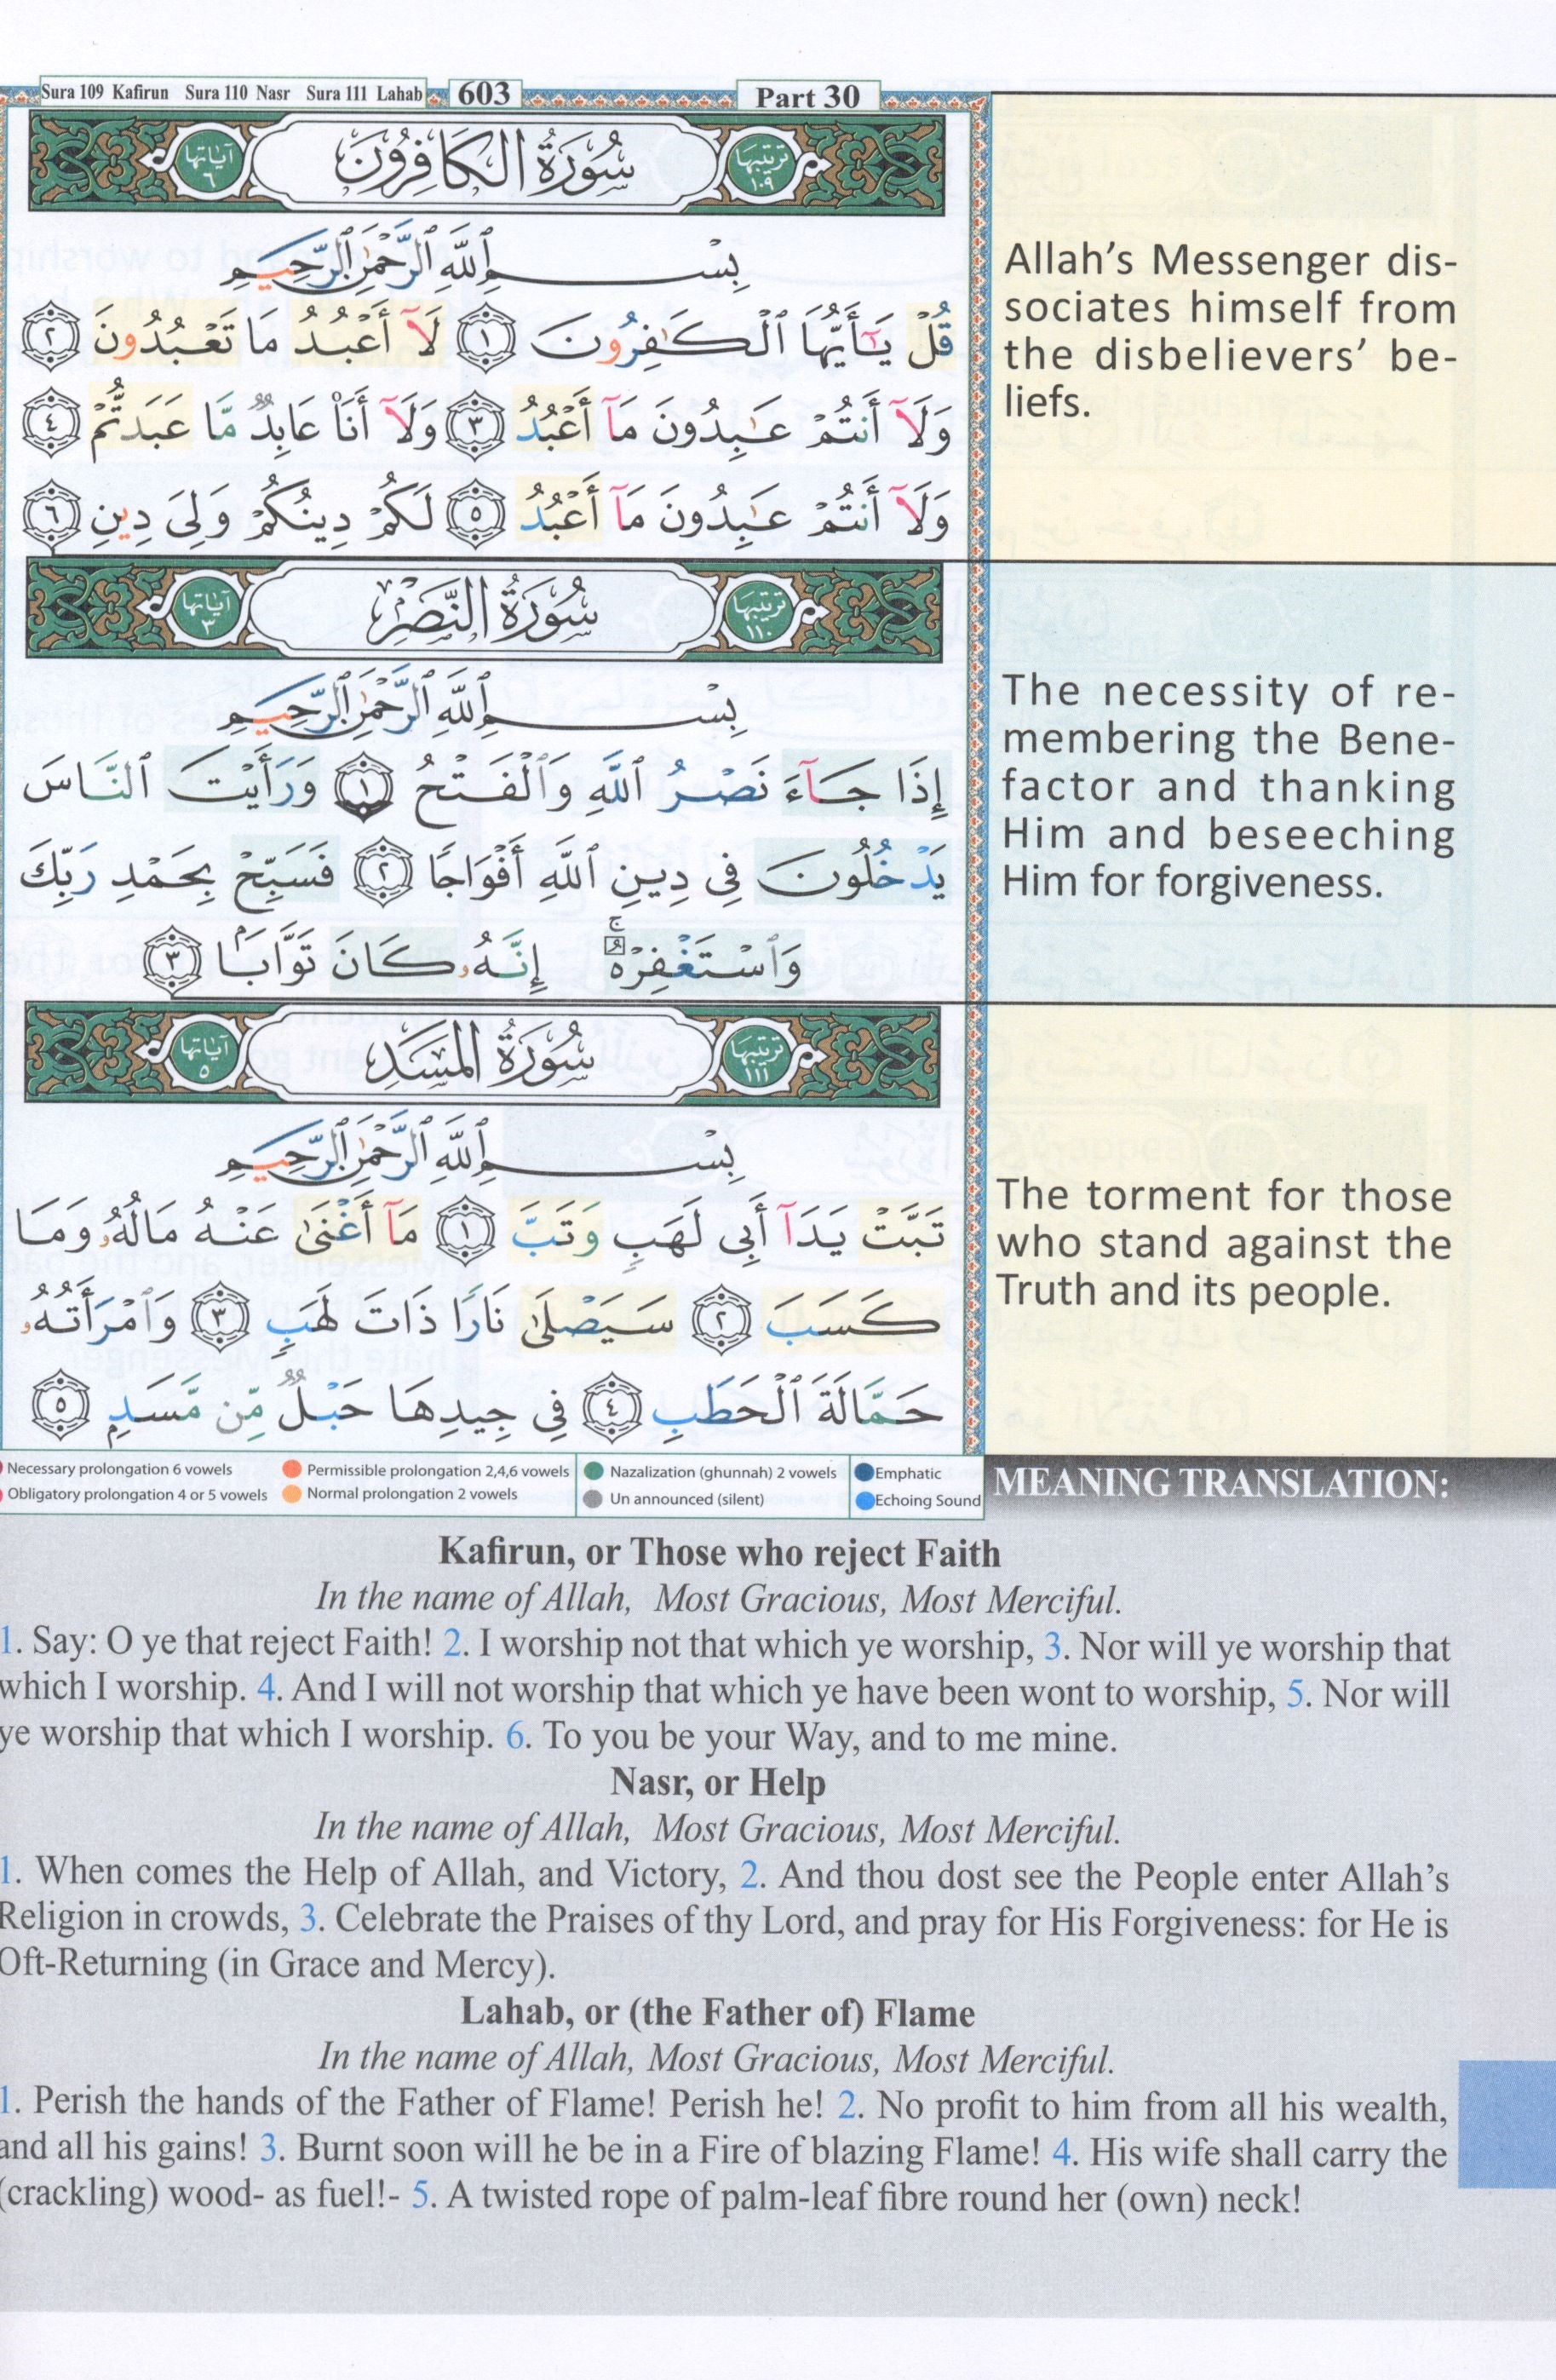 Sura 109 Kafirun Sura 110 Nasr Sura 111 Lahab
603
Part 30
آياتها ٦
سُورَةُ الكَافِرُونَ
ترتيبها ١٠٩
بِسْمِ ٱللَّهِ ٱلرَّحْمَٰنِ ٱلرَّحِيمِ
قُلْ يَٰٓأَيُّهَا ٱلْكَٰفِرُونَ ١ لَآ أَعْبُدُ مَا تَعْبُدُونَ ٢
وَلَآ أَنتُمْ عَٰبِدُونَ مَآ أَعْبُدُ ٣ وَلَآ أَنَا۠ عَابِدٌ مَّا عَبَدتُّمْ ٤
وَلَآ أَنتُمْ عَٰبِدُونَ مَآ أَعْبُدُ ٥ لَكُمْ دِينُكُمْ وَلِىَ دِينِ ٦
Allah's Messenger dis-
sociates himself from
the disbelievers' be-
liefs.
آياتها ٣
سُورَةُ النَّصْرِ
ترتيبها ١١٠
بِسْمِ ٱللَّهِ ٱلرَّحْمَٰنِ ٱلرَّحِيمِ
إِذَا جَآءَ نَصْرُ ٱللَّهِ وَٱلْفَتْحُ ١ وَرَأَيْتَ ٱلنَّاسَ
يَدْخُلُونَ فِى دِينِ ٱللَّهِ أَفْوَاجًا ٢ فَسَبِّحْ بِحَمْدِ رَبِّكَ
وَٱسْتَغْفِرْهُ ۚ إِنَّهُۥ كَانَ تَوَّابًۢا ٣
The necessity of re-
membering the Bene-
factor and thanking
Him and beseeching
Him for forgiveness.
آياتها ٥
سُورَةُ المَسَدِ
ترتيبها ١١١
بِسْمِ ٱللَّهِ ٱلرَّحْمَٰنِ ٱلرَّحِيمِ
تَبَّتْ يَدَآ أَبِى لَهَبٍ وَتَبَّ ١ مَآ أَغْنَىٰ عَنْهُ مَالُهُۥ وَمَا
كَسَبَ ٢ سَيَصْلَىٰ نَارًا ذَاتَ لَهَبٍ ٣ وَٱمْرَأَتُهُۥ
حَمَّالَةَ ٱلْحَطَبِ ٤ فِى جِيدِهَا حَبْلٌ مِّن مَّسَدٍۭ ٥
The torment for those
who stand against the
Truth and its people.
Necessary prolongation 6 vowels
Obligatory prolongation 4 or 5 vowels
Permissible prolongation 2,4,6 vowels
Normal prolongation 2 vowels
Nazalization (ghunnah) 2 vowels
Un announced (silent)
Emphatic
Echoing Sound
MEANING TRANSLATION:
Kafirun, or Those who reject Faith
In the name of Allah, Most Gracious, Most Merciful.
1. Say: O ye that reject Faith! 2. I worship not that which ye worship, 3. Nor will ye worship that
which I worship. 4. And I will not worship that which ye have been wont to worship, 5. Nor will
ye worship that which I worship. 6. To you be your Way, and to me mine.
Nasr, or Help
In the name of Allah, Most Gracious, Most Merciful.
1. When comes the Help of Allah, and Victory, 2. And thou dost see the People enter Allah's
Religion in crowds, 3. Celebrate the Praises of thy Lord, and pray for His Forgiveness: for He is
Oft-Returning (in Grace and Mercy).
Lahab, or (the Father of) Flame
In the name of Allah, Most Gracious, Most Merciful.
1. Perish the hands of the Father of Flame! Perish he! 2. No profit to him from all his wealth,
and all his gains! 3. Burnt soon will he be in a Fire of blazing Flame! 4. His wife shall carry the
(crackling) wood- as fuel!- 5. A twisted rope of palm-leaf fibre round her (own) neck!